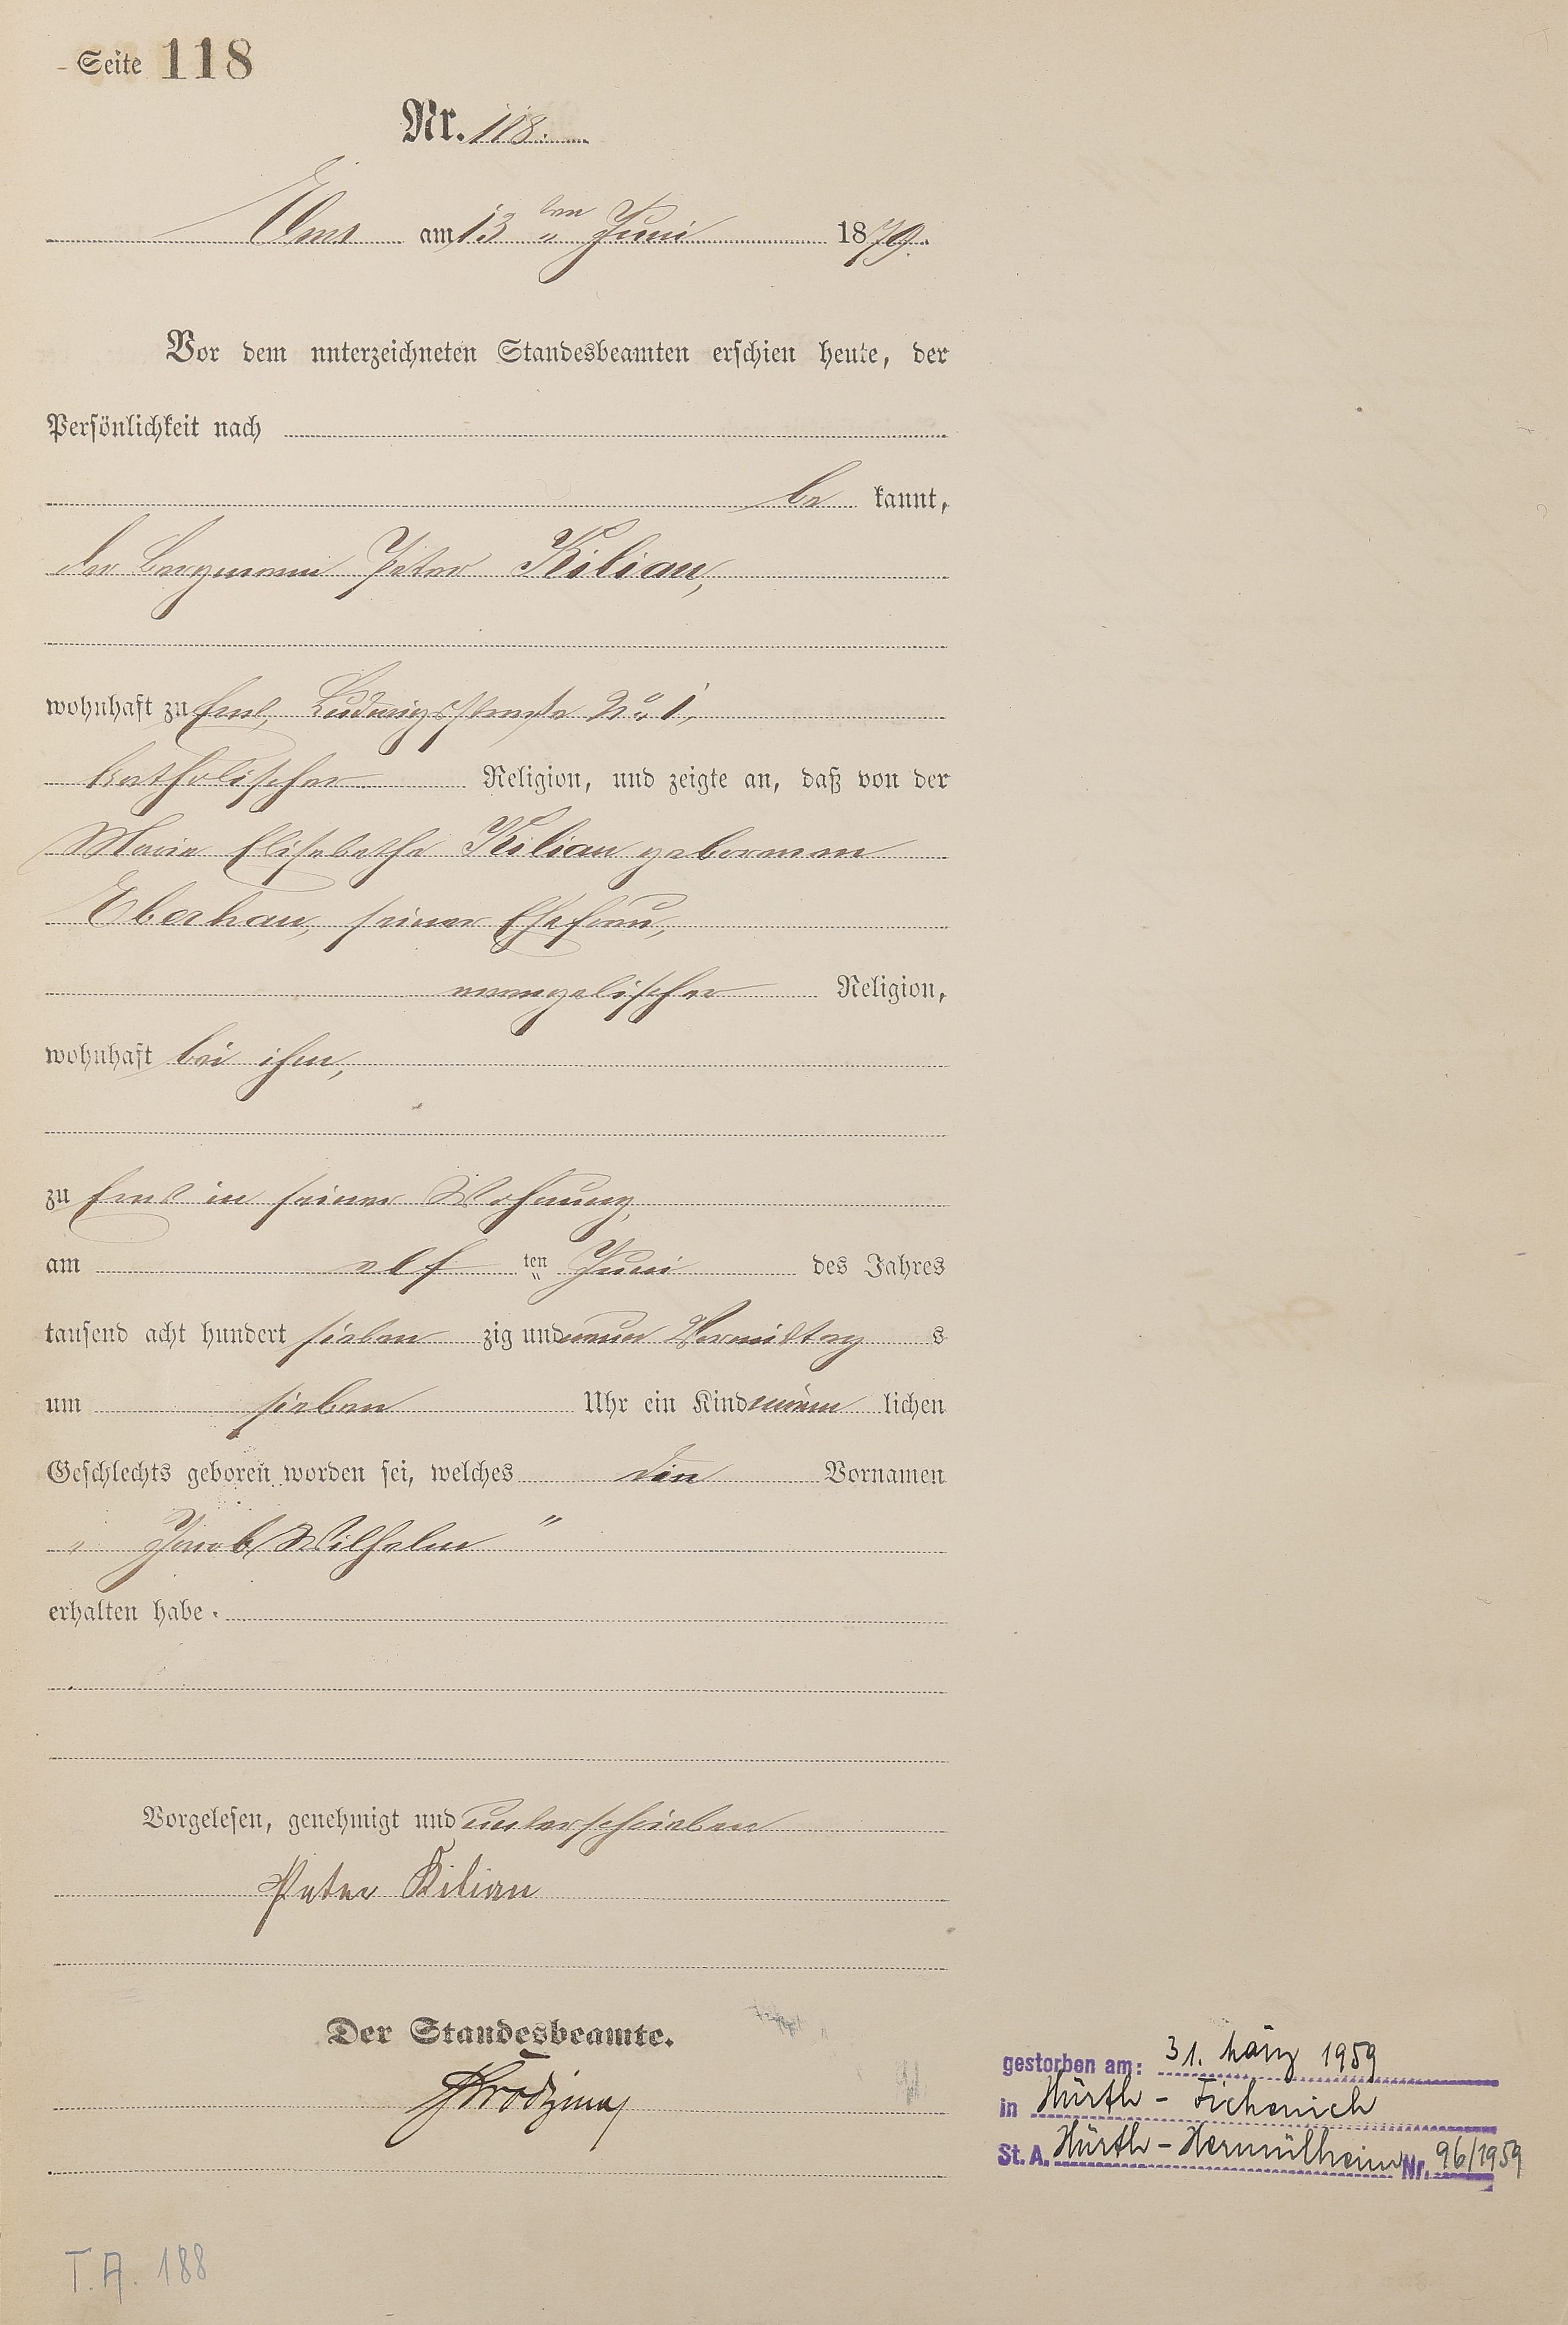 - Seite 118
Nr. 118.
Ems am 13 ten Juni 1879.
Vor dem unterzeichneten Standesbeamten erschien heute, der
Persönlichkeit nach
be kannt,
der Bergmann Peter Kilian,
wohnhaft zu Ems, Ludwigstraße No 1,
katholischer Religion, und zeigte an, daß von der
Maria Elisabetha Kilian geborenen
Eberhau, seiner Ehefrau,
evangelischer Religion,
wohnhaft bei ihm,
zu Ems in seiner Wohnung,
am elf ten Juni des Jahres
tausend acht hundert sieben zig und neun Vormittag s
um sieben Uhr ein Kind männ lichen
Geschlechts geboren worden sei, welches die Vornamen
„ Jacob Wilhelm "
erhalten habe.
Vorgelesen, genehmigt und unterschrieben
Peter Kilian
Der Standesbeamte.
gestorben am: 31. März 1959
in Hürth - Fischenich
St. A. Hürth - Hermülheim Nr. 96/1959
T.A. 188